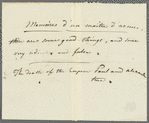 Memoires d'un maitre d'armes.
there are some good things, and some
very odious and false.
The death of the Emperor Paul and Alexander
true.